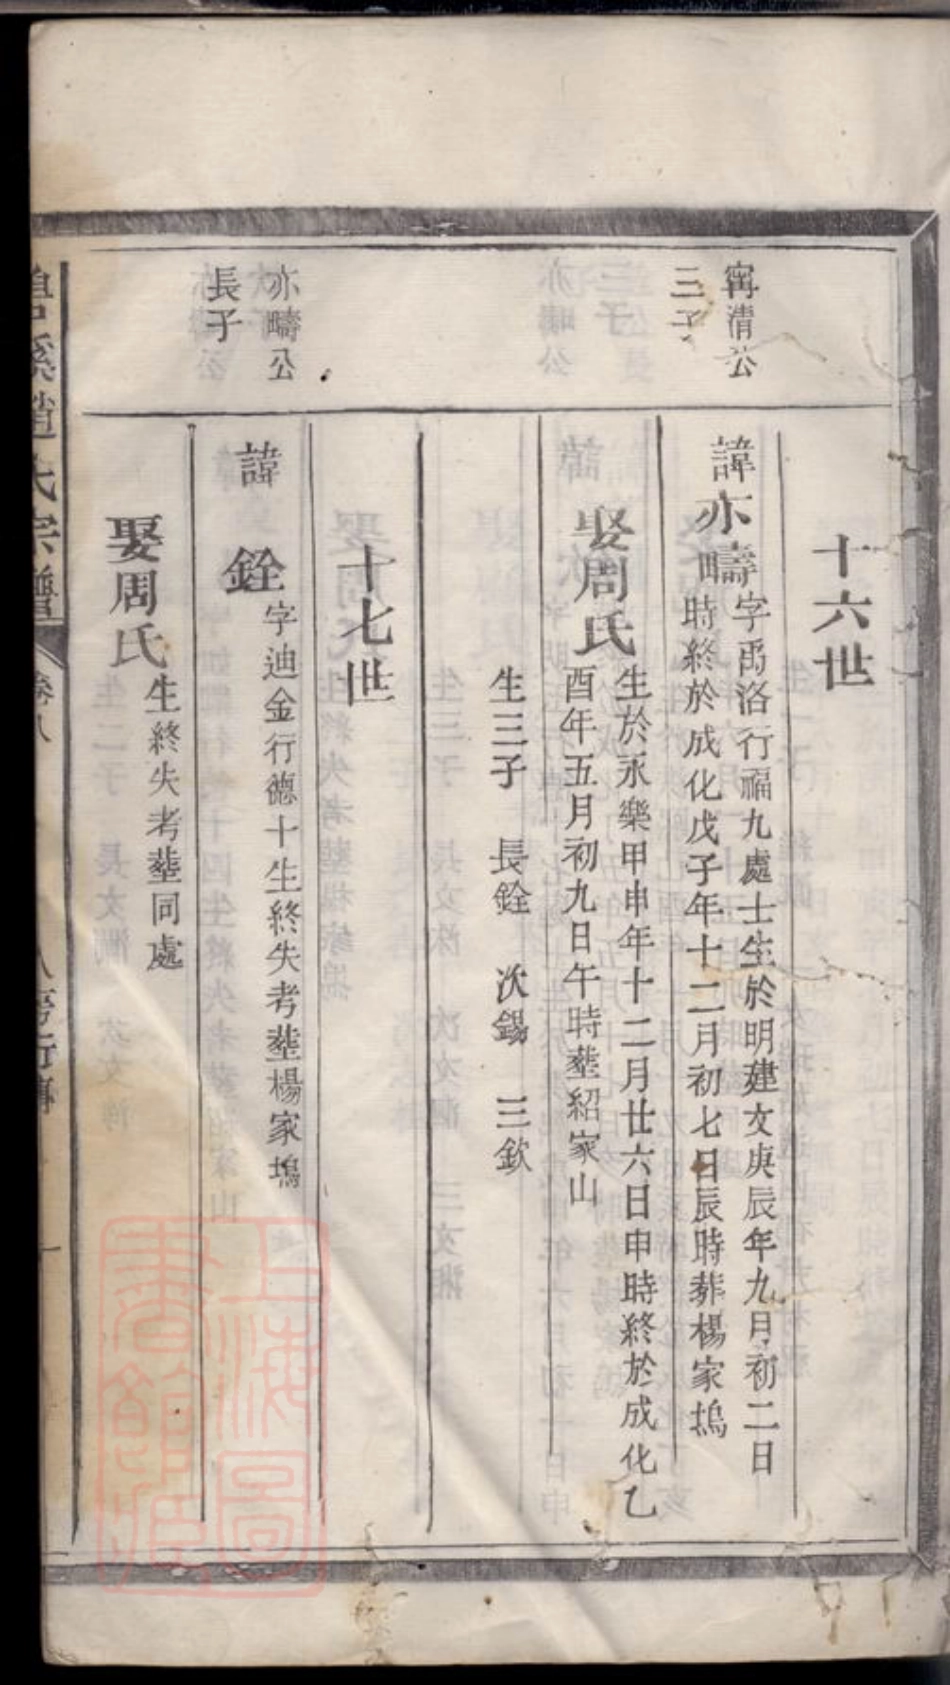 十六世
甯清公
三子
諱亦疇
字禹洛行福九處士生於明建文庚辰年九月初二日
時終於成化戊子年十二月初七日辰時葬楊家塢
娶周氏
生於永樂甲申年十二月廿六日申時終於成化乙
酉年五月初九日午時塟紹家山
生三子 長銓 次錫 三欽
十七世
亦疇公
長子
諱 銓
字迪金行德十生終失考塟楊家塢
娶周氏
生終失考塟同處
溪趙氏宗譜 卷八 行傳
上海圖書館藏